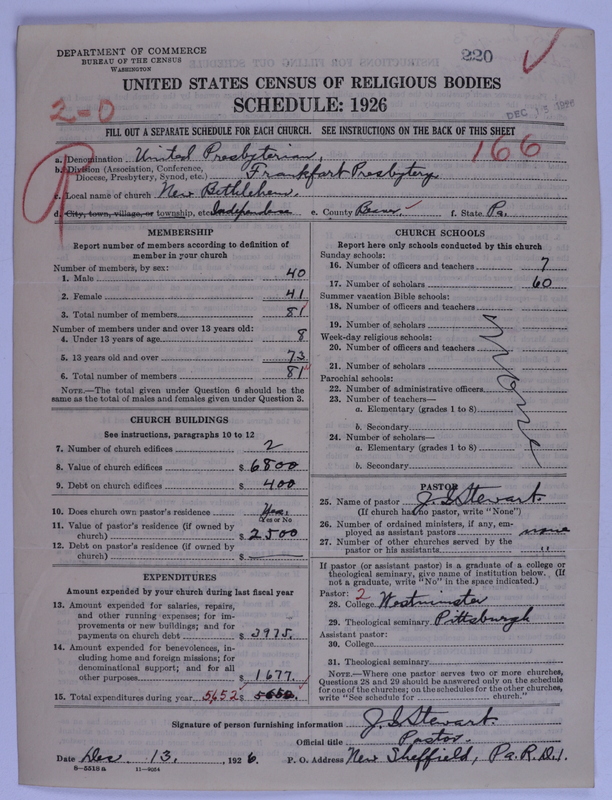 DEPARTMENT OF COMMERCE
BUREAU OF THE CENSUS
WASHINGTON
220
UNITED STATES CENSUS OF RELIGIOUS BODIES
SCHEDULE: 1926
2-0
DEC 13 1926
FILL OUT A SEPARATE SCHEDULE FOR EACH CHURCH. SEE INSTRUCTIONS ON THE BACK OF THIS SHEET
166
a. Denomination United Presbyterian,
b. Division (Association, Conference, Diocese, Presbytery, Synod, etc.) Frankfort Presbytery
c. Local name of church New Bethlehem.
d. City, town, village, or township, etc. Independence e. County Beaver, f. State Pa.
MEMBERSHIP
Report number of members according to definition of member in your church
Number of members, by sex:
1. Male 40
2. Female 41
3. Total number of members 81
Number of members under and over 13 years old:
4. Under 13 years of age 8
5. 13 years old and over 73
6. Total number of members 81
NOTE.—The total given under Question 6 should be the same as the total of males and females given under Question 3.
CHURCH BUILDINGS
See instructions, paragraphs 10 to 12
7. Number of church edifices 2
8. Value of church edifices $6800
9. Debt on church edifices $400
10. Does church own pastor's residence Yes,
Yes or No
11. Value of pastor's residence (if owned by church) $2500
12. Debt on pastor's residence (if owned by church) $
EXPENDITURES
Amount expended by your church during last fiscal year
13. Amount expended for salaries, repairs, and other running expenses; for improvements or new buildings; and for payments on church debt $3975.
14. Amount expended for benevolences, including home and foreign missions; for denominational support; and for all other purposes $1677.
15. Total expenditures during year 5652 $
CHURCH SCHOOLS
Report here only schools conducted by this church
Sunday schools:
16. Number of officers and teachers 7
17. Number of scholars 60
Summer vacation Bible schools:
18. Number of officers and teachers
19. Number of scholars
Week-day religious schools:
20. Number of officers and teachers
21. Number of scholars
Parochial schools:
22. Number of administrative officers
23. Number of teachers—
a. Elementary (grades 1 to 8)
b. Secondary
24. Number of scholars—
a. Elementary (grades 1 to 8)
b. Secondary
none
PASTOR
25. Name of pastor J. S. Stewart.
(If church has no pastor, write "None")
26. Number of ordained ministers, if any, employed as assistant pastors none
27. Number of other churches served by the pastor or his assistants "
If pastor (or assistant pastor) is a graduate of a college or theological seminary, give name of institution below. (If not a graduate, write "No" in the space indicated.)
Pastor: 2
28. College Westminster
29. Theological seminary Pittsburgh
Assistant pastor:
30. College
31. Theological seminary
NOTE.—Where one pastor serves two or more churches, Questions 28 and 29 should be answered only on the schedule for one of the churches; on the schedules for the other churches, write "See schedule for church."
Signature of person furnishing information J. S. Stewart.
Official title Pastor.
Date Dec 13, 1926. P. O. Address New Sheffield, Pa. R.D.1.
8-5518a 11-9054